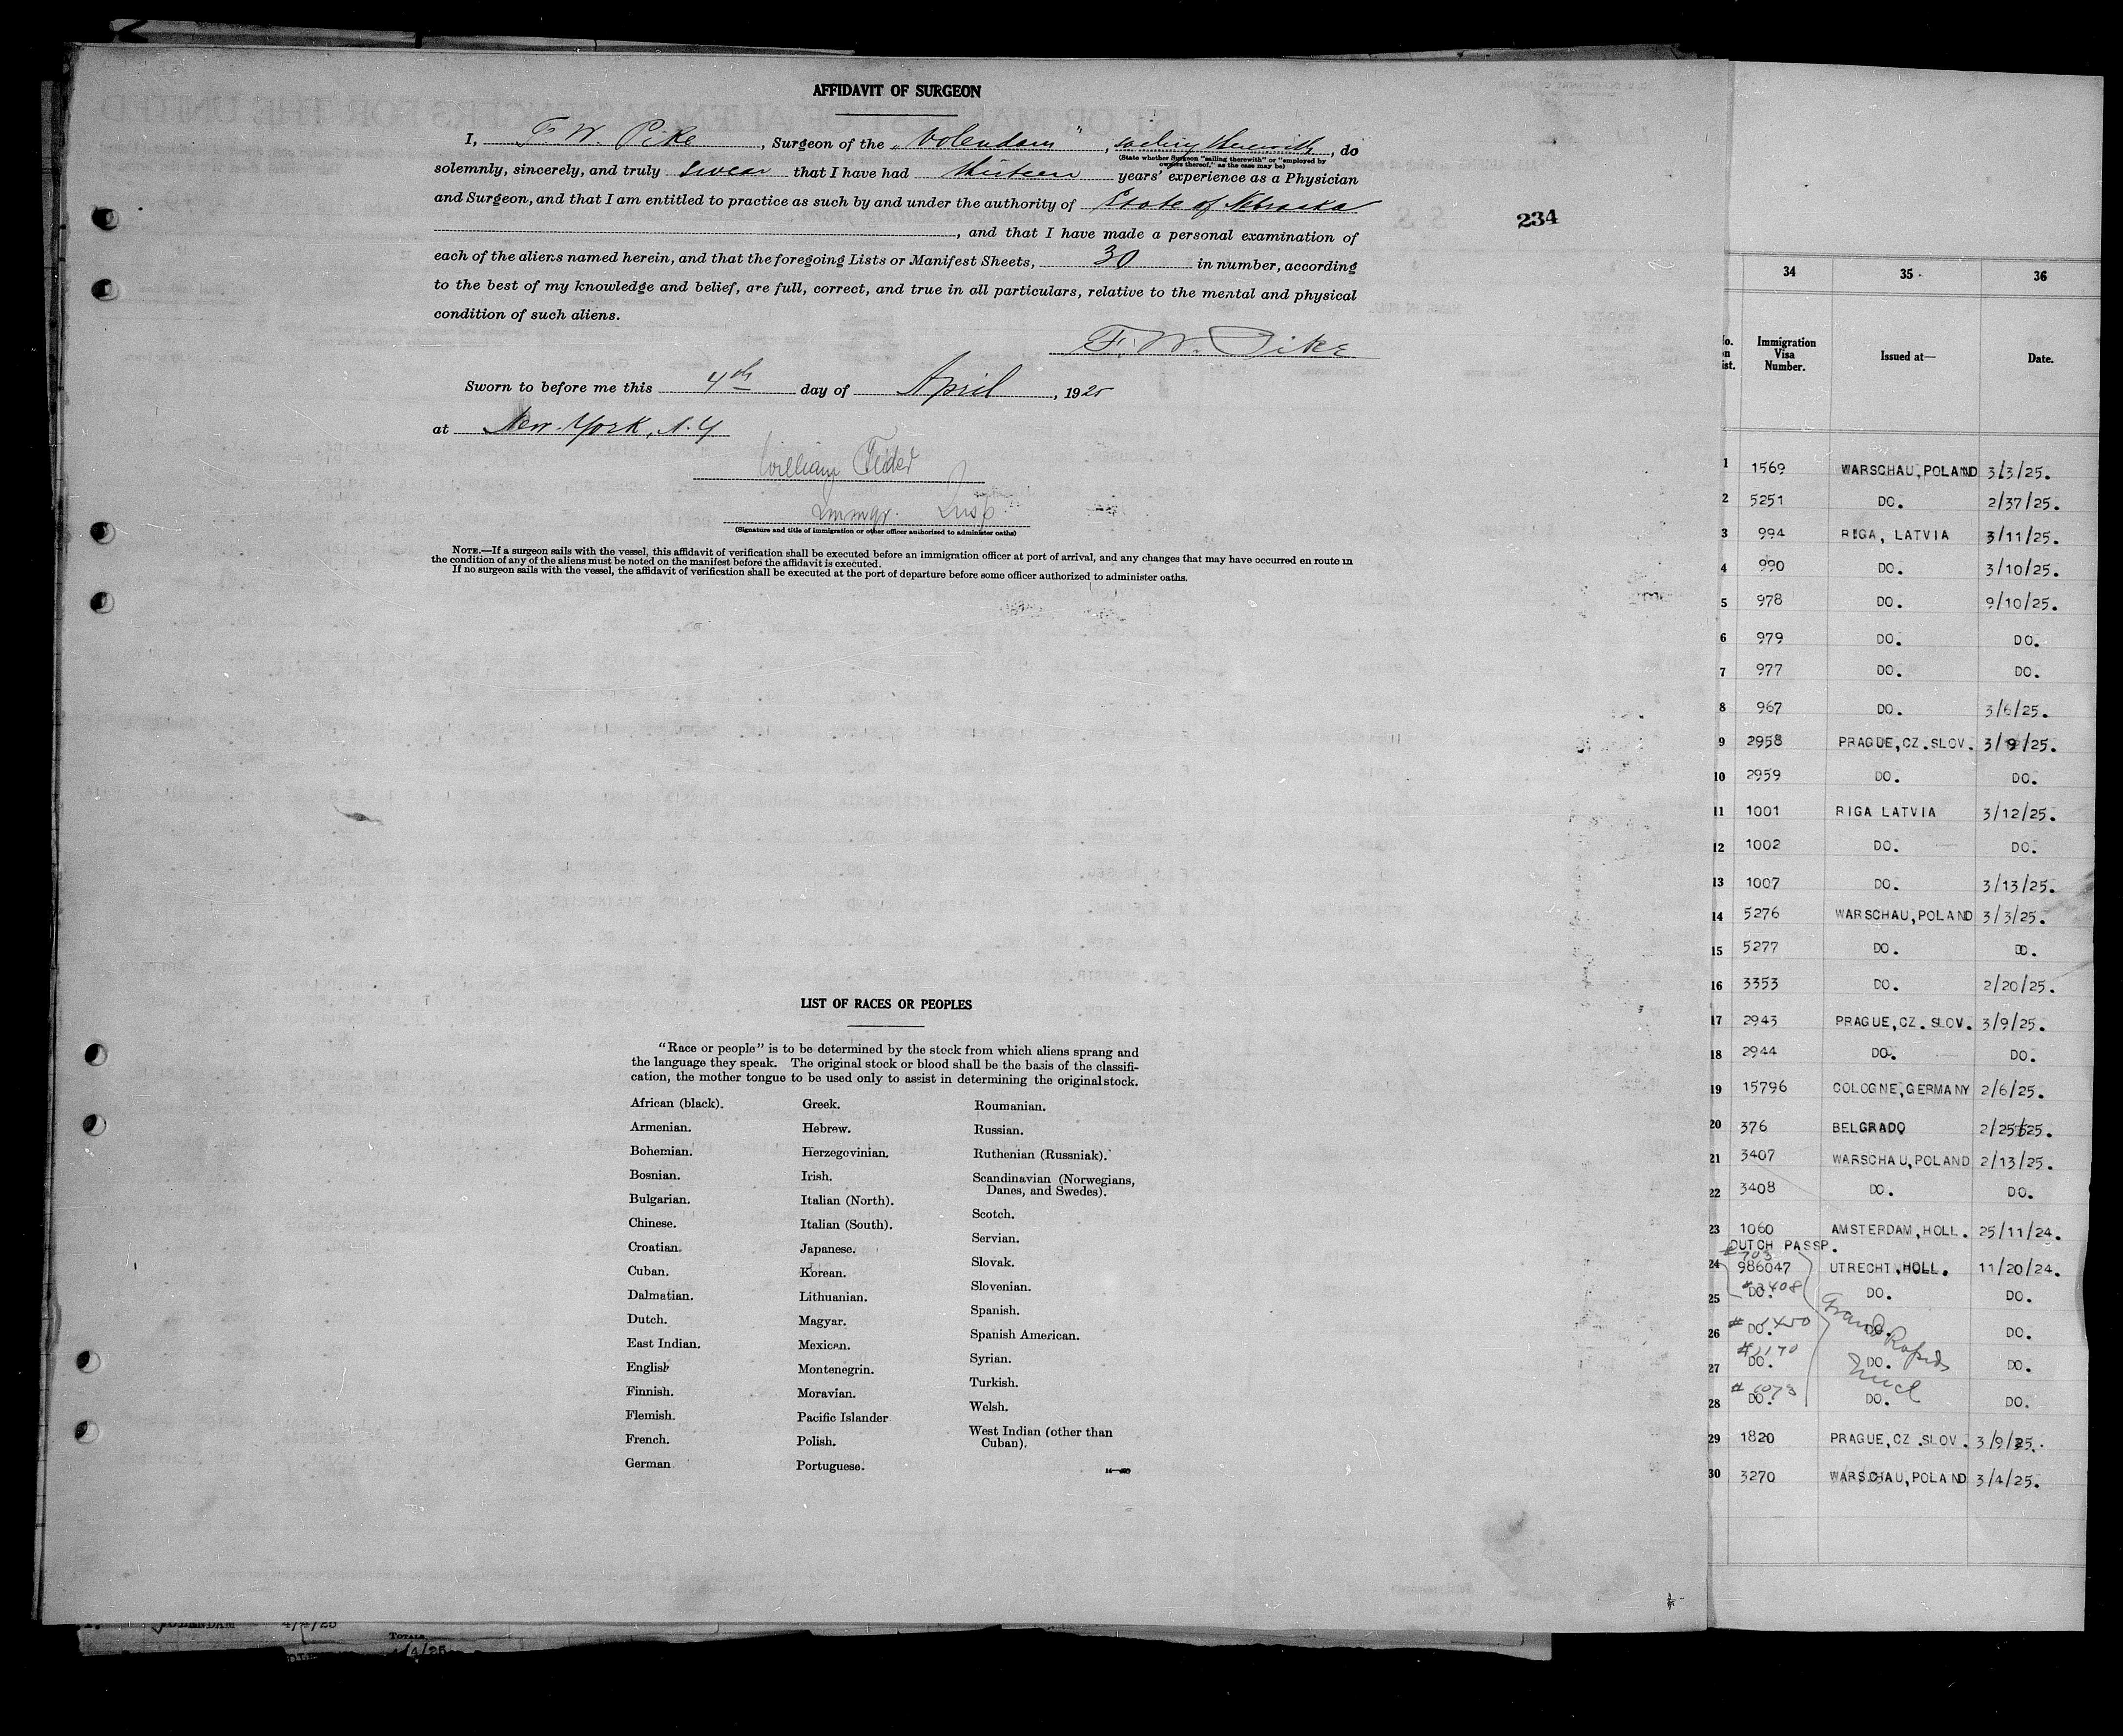 AFFIDAVIT OF SURGEON
I, F. W. Pike, Surgeon of the „Volendam", sailing therewith, do
(State whether Surgeon "sailing therewith" or "employed by
owners thereof," as the case may be)
solemnly, sincerely, and truly swear that I have had thirteen years' experience as a Physician
and Surgeon, and that I am entitled to practice as such by and under the authority of State of Nebraska
, and that I have made a personal examination of
each of the aliens named herein, and that the foregoing Lists or Manifest Sheets, 30 in number, according
to the best of my knowledge and belief, are full, correct, and true in all particulars, relative to the mental and physical
condition of such aliens.
F. W. Pike
Sworn to before me this 4th day of April, 1925
at New-York, N.Y
William
Immgr. Insp
(Signature and title of immigration or other officer authorized to administer oaths)
NOTE.—If a surgeon sails with the vessel, this affidavit of verification shall be executed before an immigration officer at port of arrival, and any changes that may have occurred en route in
the condition of any of the aliens must be noted on the manifest before the affidavit is executed.
If no surgeon sails with the vessel, the affidavit of verification shall be executed at the port of departure before some officer authorized to administer oaths.
234
LIST OF RACES OR PEOPLES
"Race or people" is to be determined by the stock from which aliens sprang and
the language they speak. The original stock or blood shall be the basis of the classifi-
cation, the mother tongue to be used only to assist in determining the original stock.
African (black).
Armenian.
Bohemian.
Bosnian.
Bulgarian.
Chinese.
Croatian.
Cuban.
Dalmatian.
Dutch.
East Indian.
English
Finnish.
Flemish.
French.
German
Greek.
Hebrew.
Herzegovinian.
Irish.
Italian (North).
Italian (South).
Japanese.
Korean.
Lithuanian.
Magyar.
Mexican.
Montenegrin.
Moravian.
Pacific Islander
Polish.
Portuguese.
Roumanian.
Russian.
Ruthenian (Russniak).
Scandinavian (Norwegians,
Danes, and Swedes).
Scotch.
Servian.
Slovak.
Slovenian.
Spanish.
Spanish American.
Syrian.
Turkish.
Welsh.
West Indian (other than
Cuban).
34 35 36
Immigration
Visa
Number.
Issued at—
Date.
1 1569 WARSCHAU,POLAND 3/3/25.
2 5251 DO. 2/37/25.
3 994 RIGA, LATVIA 3/11/25.
4 990 DO. 3/10/25.
5 978 DO. 9/10/25.
6 979 DO. DO.
7 977 DO. DO.
8 967 DO. 3/6/25.
9 2958 PRAGUE,CZ.SLOV. 3/9/25.
10 2959 DO. DO.
11 1001 RIGA LATVIA 3/12/25.
12 1002 DO. DO.
13 1007 DO. 3/13/25.
14 5276 WARSCHAU,POLAND 3/3/25.
15 5277 DO. DO.
16 3353 DO. 2/20/25.
17 2943 PRAGUE,CZ.SLOV. 3/9/25.
18 2944 DO. DO.
19 15796 COLOGNE,GERMANY 2/6/25.
20 376 BELGRADO 2/25/25.
21 3407 WARSCHAU,POLAND 2/13/25.
22 3408 DO. DO.
23 1060 AMSTERDAM,HOLL. 25/11/24.
DUTCH PASSP.
24 986047 UTRECHT,HOLL. 11/20/24.
25 DO. DO. DO.
26 DO. DO. DO.
27 DO. DO. DO.
28 DO. DO. DO.
Grand Rapids
29 1820 PRAGUE,CZ.SLOV. 3/9/25.
30 3270 WARSCHAU,POLAND 3/4/25.
VOLENDAM 4/4/25
TOTALS
4/4/25